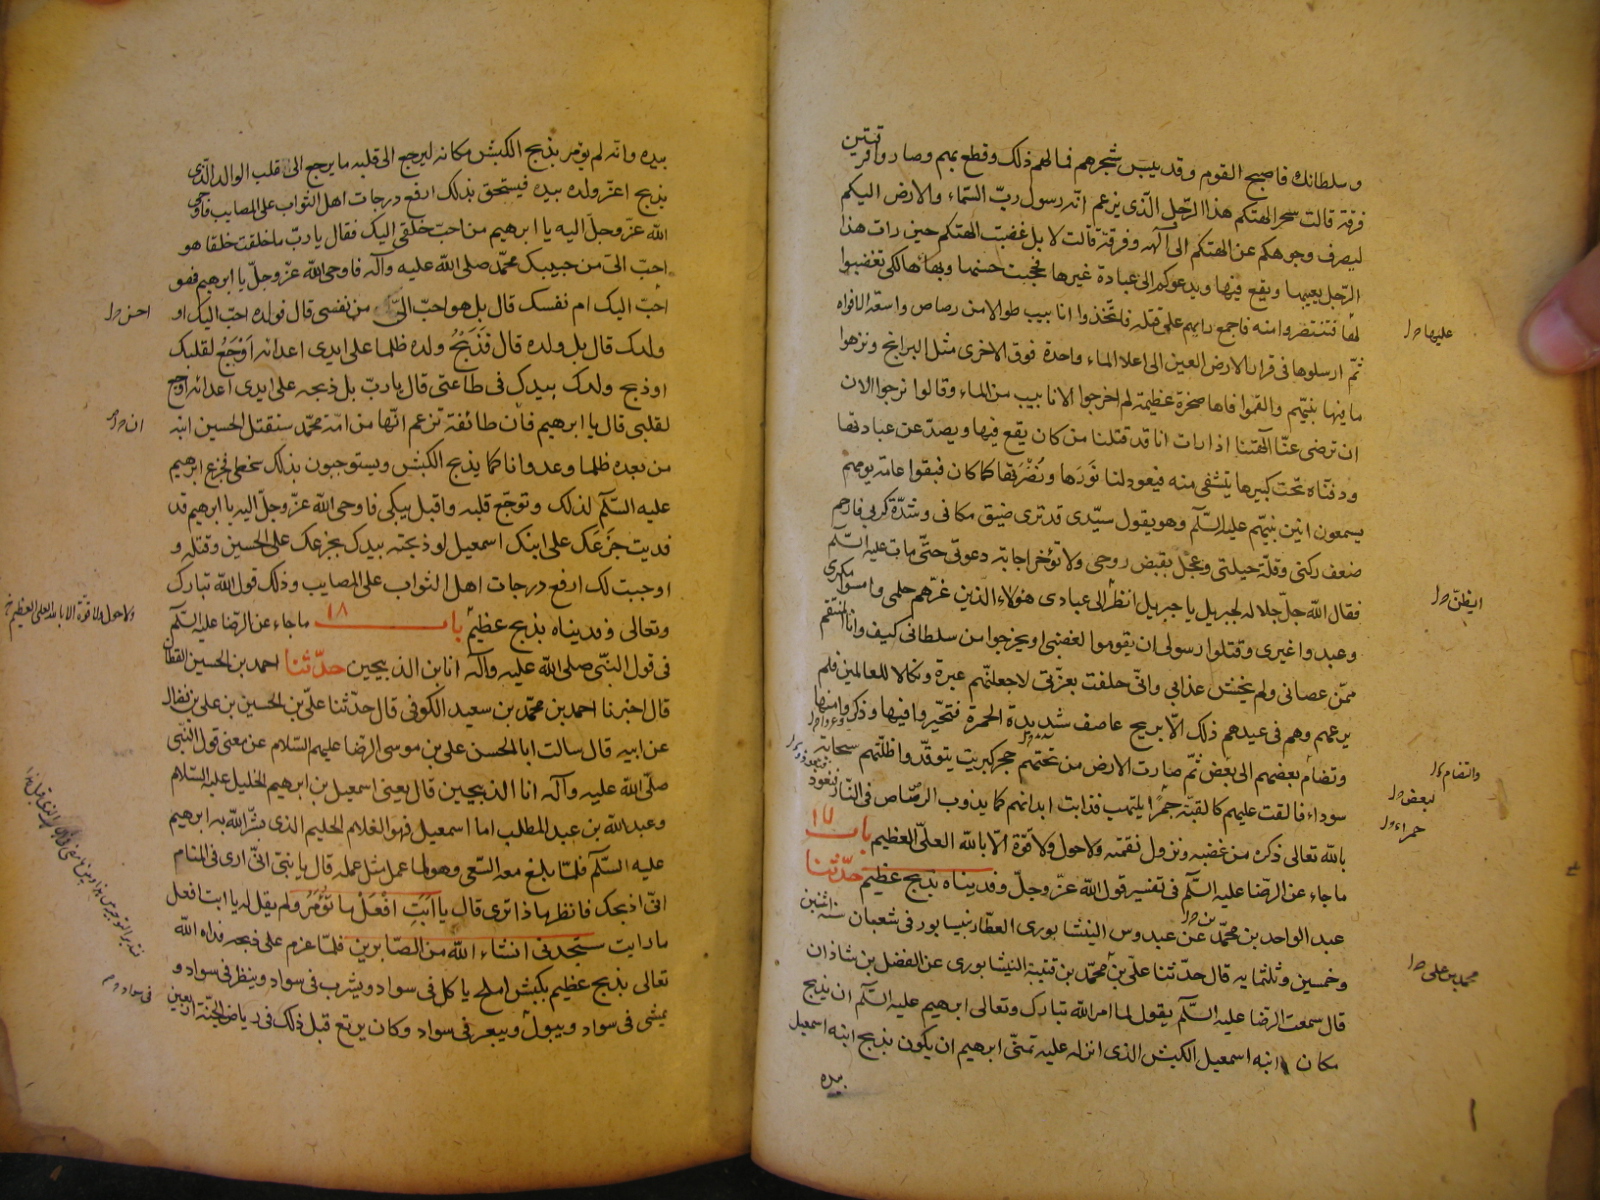 وسلطانك فاصبح القوم وقد يبس شجرهم فهالهم ذلك وقطع بهم وصاروا فرقتين
فرقة قالت سحر الهتكم هذا الرجل الّذى يزعم انّه رسول ربّ السّماء والارض اليكم
ليصرف وجوهكم عن الهتكم الى آلهه وفرقة قالت لا بل غضبت الهتكم حين رات هذا
الرّجل يعيبها ويقع فيها ويدعوكم الى عبادة غيرها فحجبت حسنها وبهاءها لكى تغضبوا
لها فتنتصروا منه فاجمع رايهم على قتله فاتخذوا انابيب طوالا من رصاص واسعة الافواه
ثمّ ارسلوها فى قرار الارض العين الى اعلا الماء واحدة فوق الاخرى مثل البرابخ ونزحوا
ما فيها نبيّهم والقموا فاها صخرة عظيمة ثم اخرجوا الانابيب من الماء وقالوا نرجوا الان
ان ترضى عنّا آلهتنا اذا رات انا قد قتلنا من كان يقع فيها ويصدّ عن عبادتها
ودفنّاه تحت كبيرها يتشفى منه فيعود لنا نَورَها ونُضْرَتها كما كان فبقوا عامة يومهم
يسمعون انين نبيّهم عليه السّلم وهو يقول سيّدى قد ترى ضيق مكانى وشدّة كربى فارحم
ضعف ركنى وقلّة حيلتى وعجّل بقبض روحى ولا تؤخر اجابة دعوتى حتّى مات عليه السّلم
فقال اللّه جلّ جلاله لجبريل يا جبريل انظر الى عبادى هؤلاء الذين غرّهم حلمى وامنوا مكرى
وعبدوا غيرى وقتلوا رسولى ان يقوموا لغضبى او يخرجوا من سلطانى كيف وانا المنتقم
ممّن عصانى ولم يخش عذابى وانّى حلفت بعزّتى لاجعلنّهم عبرة ونكالا للعالمين فلم
يرعهم وهم فى عيدهم ذلك الّا بريح عاصف شديدة الحمرة فتحيّروا فيها وذعروا منها
وتضام بعضهم الى بعض ثمّ صارت الارض من تحتهم حجر كبريت يتوقّد واظلّتهم سحابة
سوداء فالقت عليهم كالقبّة جمرًا يلتهب فذابت ابدانهم كما يذوب الرصاص فى النّار فنعوذ
باللّه تعالى ذكره من غضبه ونزول نقمته ولا حول ولا قوة الّا باللّه العلىّ العظيم باب ١٧
ما جاء عن الرّضا عليه السّلم فى تفسير قول اللّه عزّ وجلّ وفديناه بذبح عظيم حدّثنا
عبد الواحد بن محمّد بن عبدوس النيشابورى العطّار بنيسابور فى شعبان سنة اثنتين
وخمسين وثلثمايه قال حدّثنا علىّ بن محمّد بن قتيبة النيشابورى عن الفضل بن شاذان
قال سمعت الرضا عليه السّلم يقول لما امر اللّه تبارك وتعالى ابرهيم عليه السّلم ان يذبح
مكان ابنه اسمعيل الكبش الذى انزله عليه تمنّى ابرهيم ان يكون يذبح ابنه اسمعيل
بيده
عليها
والتضام
لبعض
حمراء
محمد بن على
بيده وانّه لم يؤمر بذبح الكبش مكانه ليرجع الى قلبه ما يرجع الى قلب الوالد الّذى
يذبح اعزّ ولده بيده فيستحق بذلك ارفع درجات اهل الثواب على المصايب فاوحى
اللّه عزّ وجلّ اليه يا ابرهيم من احبّ خلقى اليك فقال يا ربّ ما خلقت خلقا هو
احبّ الىّ من حبيبك محمّد صلى اللّه عليه وآله فاوحى اللّه عزّ وجلّ يا ابرهيم فهو
احبّ اليك ام نفسك قال بل هو احبّ الىّ من نفسى قال فولده احبّ اليك او
ولدك قال بل ولده قال فَذَبحُ ولده ظلما على ايدى اعدائه اَوْجَعُ لقلبك
او ذبح ولدك بيدك فى طاعتى قال يا ربّ بل ذبحه على ايدى اعدائه اوجع
لقلبى قال يا ابرهيم فان طائفة تزعم انّها من امّة محمّد ستقتل الحسين ابنه
من بعده ظلما وعدوانا كما يذبح الكبش ويستوجبون بذلك سخطى فجزع ابرهيم
عليه السّلم لذلك وتوجّع قلبه واقبل يبكى فاوحى اللّه عزّ وجلّ اليه يا ابرهيم قد
فديت جَزَعَك على ابنك اسمعيل لو ذبحته بيدك بجزعك على الحسين وقتله و
اوجبت لك ارفع درجات اهل الثواب على المصايب وذلك قول اللّه تبارك
وتعالى وفديناه بذبح عظيم باب ١٨ ما جاء عن الرّضا عليه السّلم
فى قول النبّى صلى اللّه عليه وآله انا ابن الذبيحين حدّثنا احمد بن الحسين القطان
قال اخبرنا احمد بن محمّد بن سعيد الكوفى قال حدّثنا علىّ بن الحسين بن على بن فضال
عن ابيه قال سالت ابا الحسن على بن موسى الرضا عليهم السّلام عن معنى قول النبّى
صلّى اللّه عليه وآله انا ابن الذبيحين قال يعنى اسمعيل بن ابرهيم الخليل عليه السّلام
وعبد اللّه بن عبد المطلب اما اسمعيل فهو الغلام الحليم الذى بشّر اللّه به ابرهيم
عليه السّلم فلمّا بلغ معه السّعى وهو لما عمل مثل عمله قال يا بنىّ انّى ارى فى المنام
انّى اذبحك فانظر ماذا ترى قال يا ابتِ افعل ما تُؤْمَرُ ولم يقل له يا ابت افعل
ما رايت ستجدنى انشاء اللّه من الصّابرين فلمّا عزم على ذبحه فداه اللّه
تعالى بذبح عظيم بكبش املح ياكل فى سواد ويشرب فى سواد وينظر فى سواد و
يمشى فى سواد ويبول ويبعر فى سواد وكان يرتع قبل ذلك فى رياض الجنّة اربعين
ولا حول ولا قوّة الا بالله العلى العظيم
فى سواد